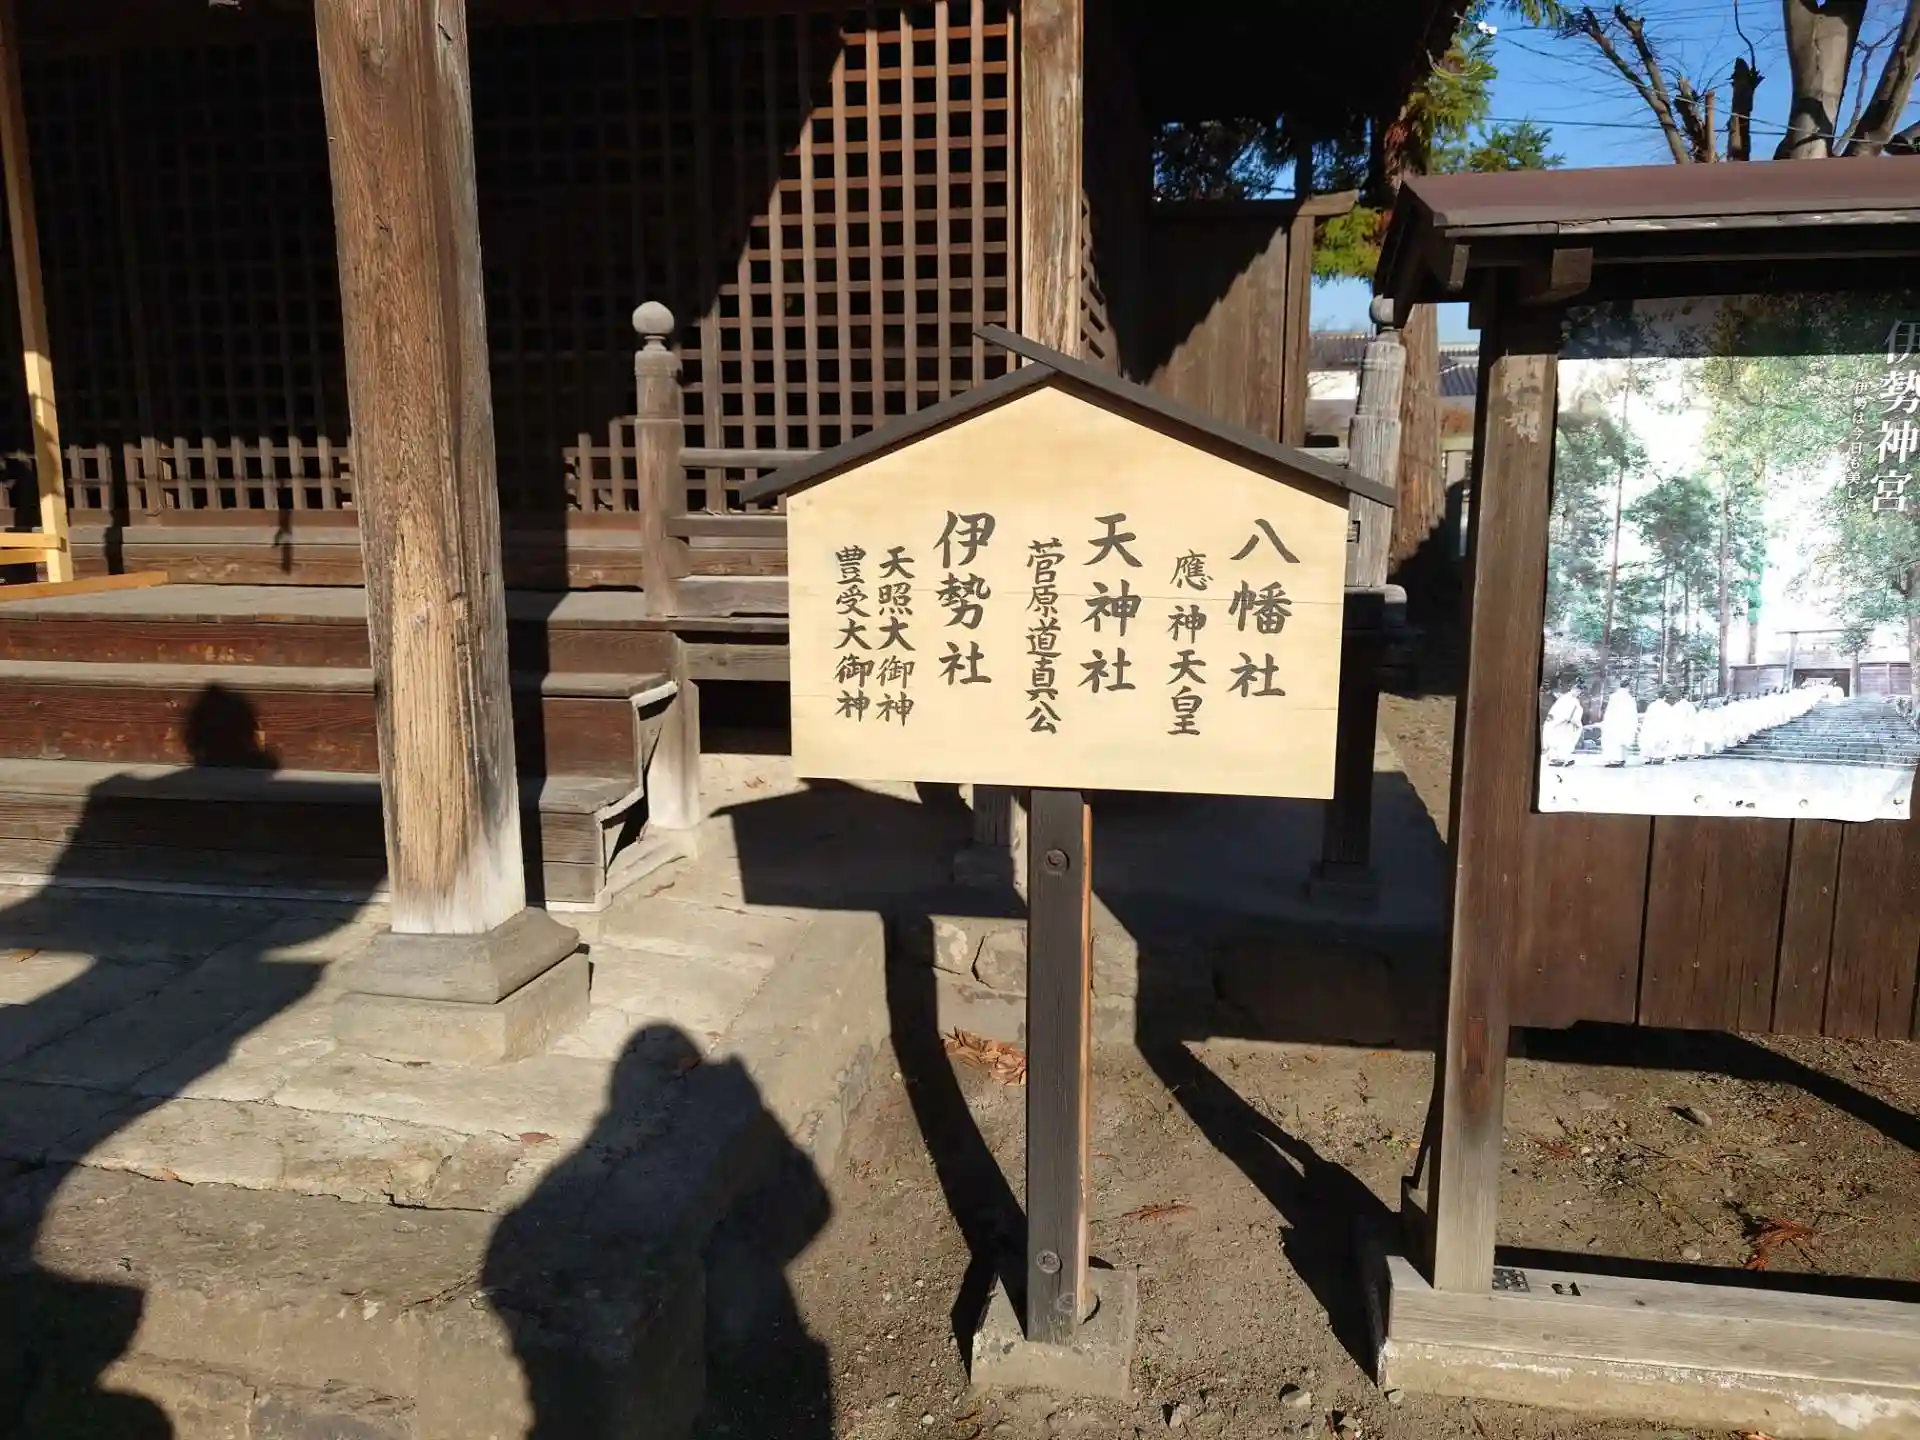 八幡社
應神天皇
天神社
菅原道真公
伊勢社
天照大御神
豊受大御神
伊勢神宮
伊勢は今日も美し